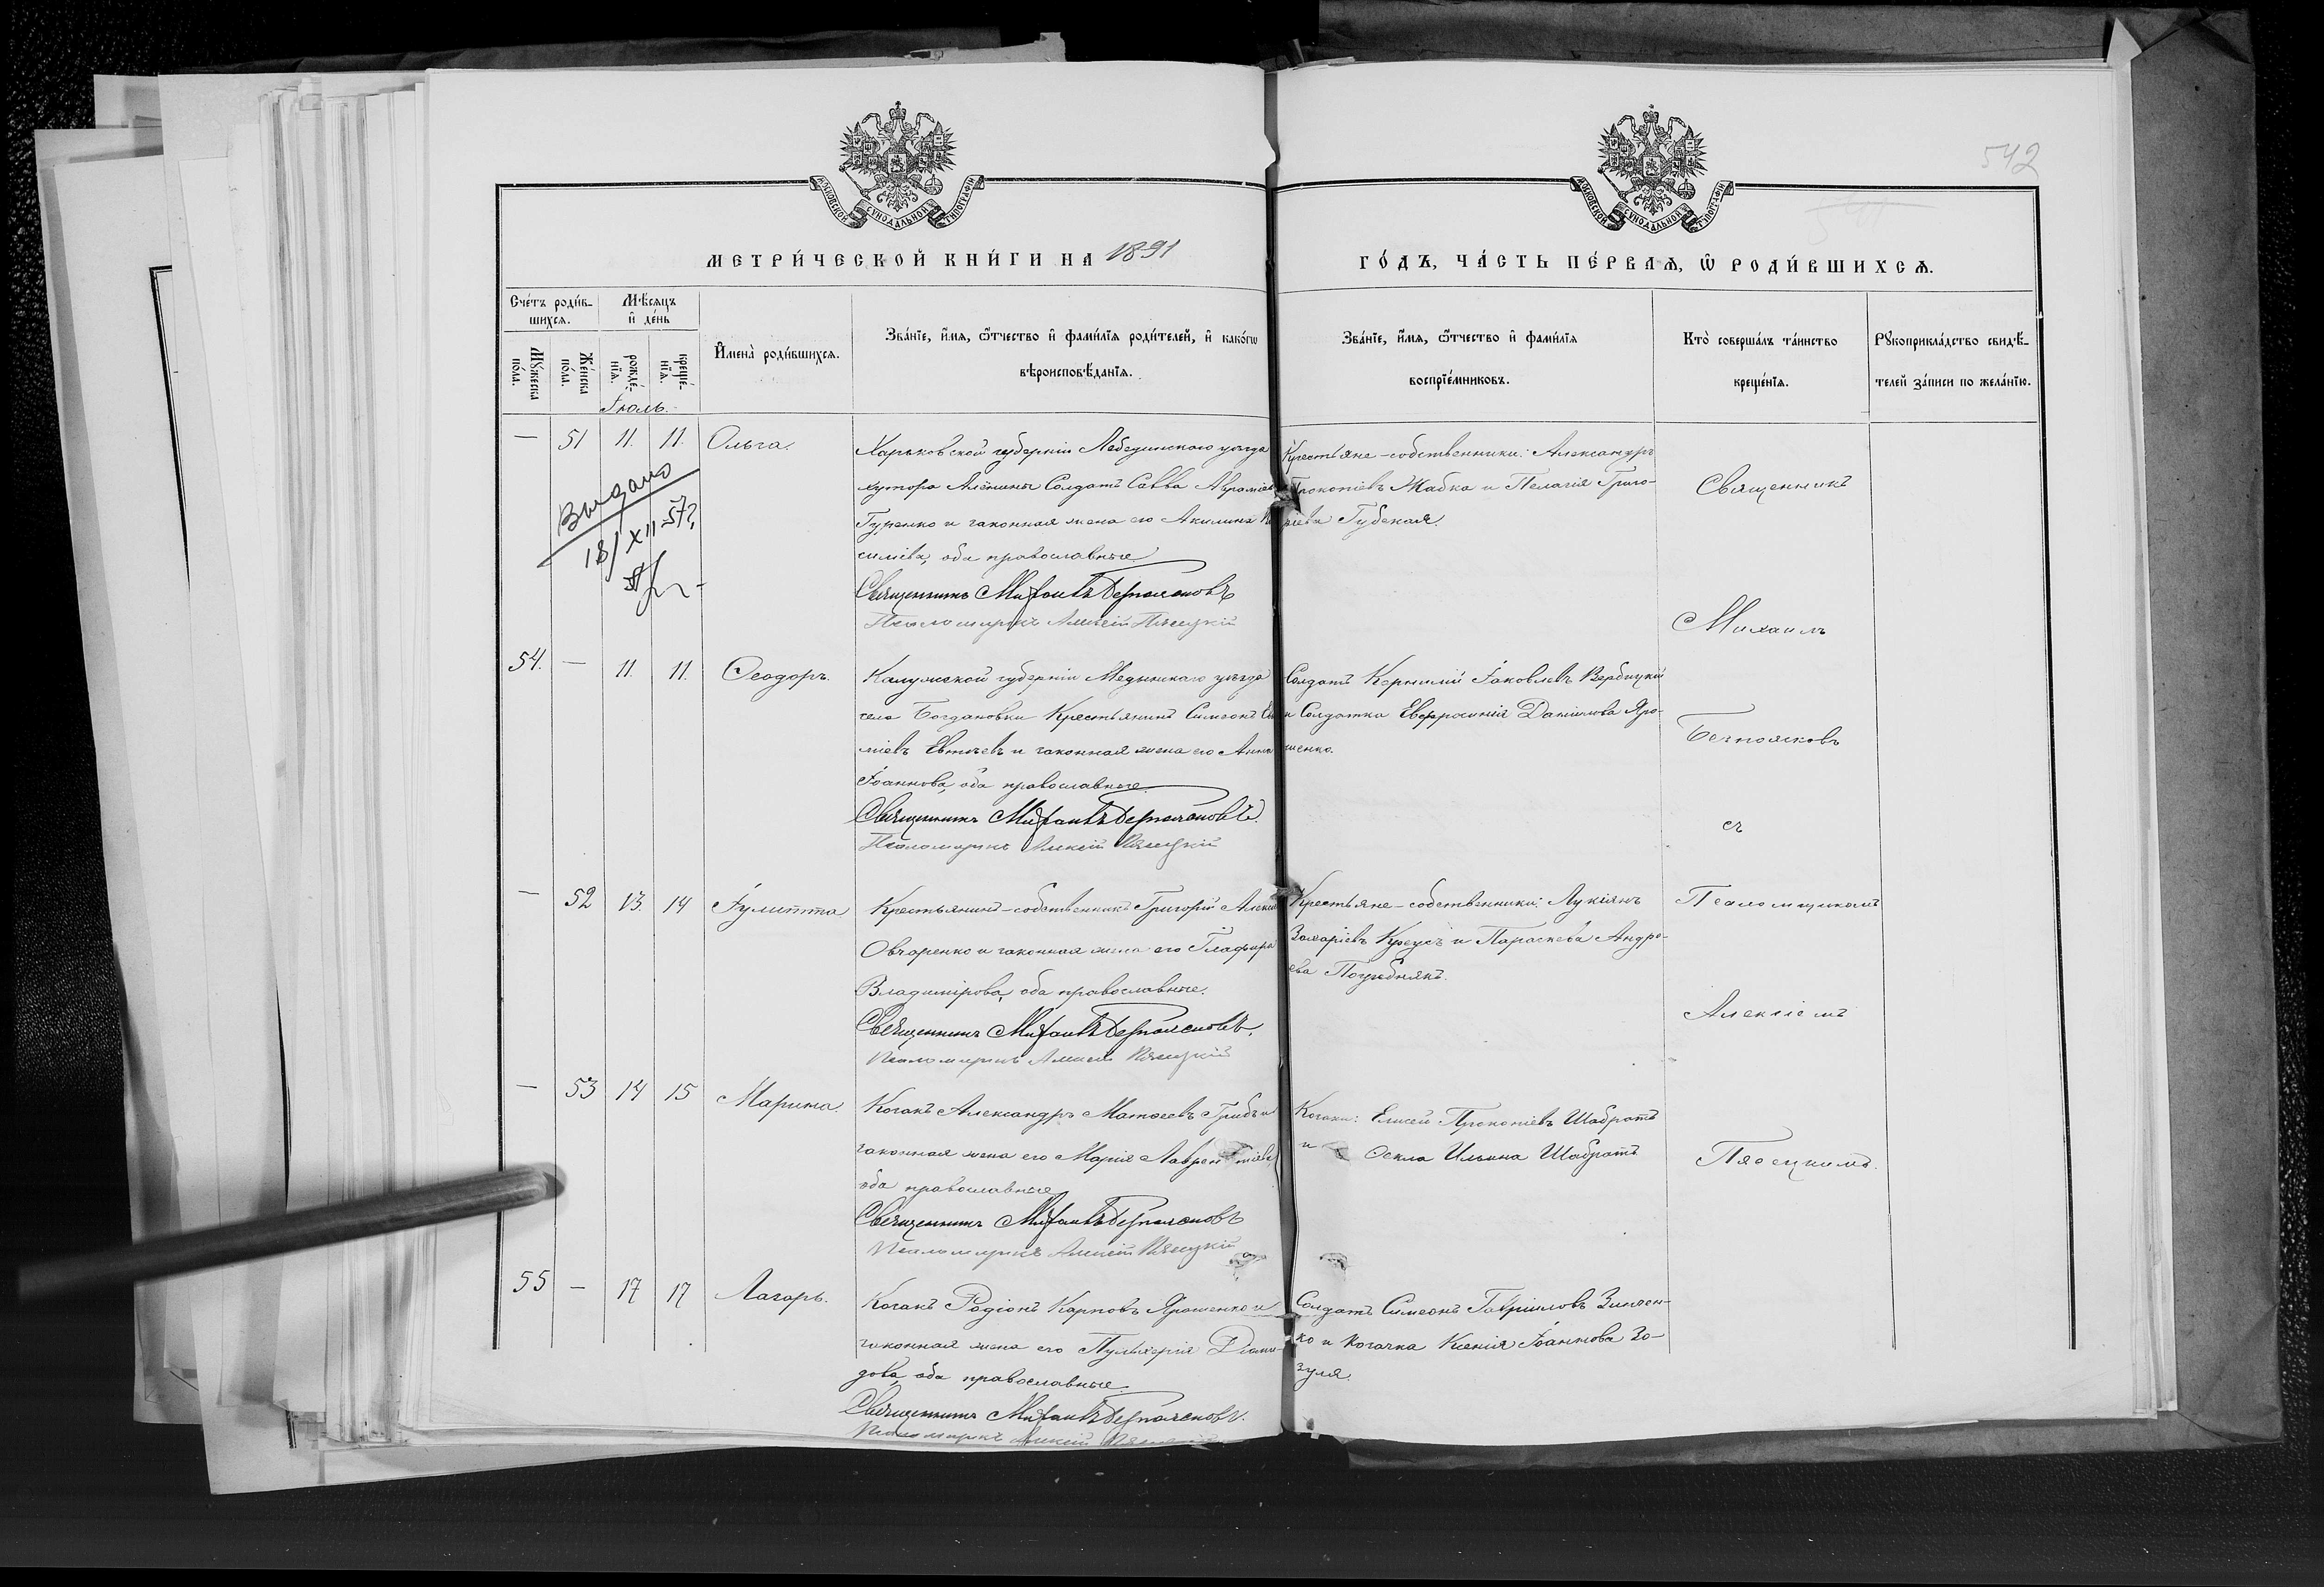 542
МОСКОВСКОЙ СѴНОДАЛЬНОЙ ТИПОГРАФІИ
МОСКОВСКОЙ СѴНОДАЛЬНОЙ ТИПОГРАФІИ
МЕТРИ́ЧЕСКОЙ КНИ́ГИ НА 1891
ГО́ДЪ, ЧА́СТЬ ПЕ́РВАѦ, Ѿ РОДИ́ВШИХСѦ.
Сче́тъ роди́в-
шихсѧ.
Мꙋ́жеска по́ла.
Же́нска по́ла.
Мѣ́сѧцъ
и҆ де́нь
рожде́-
нїѧ.
креще́-
нїѧ.
И҆мена̀ роди́вшихсѧ.
Зва́нїе, и҆́мѧ, ѻ҆́тчество и҆ фами́лїѧ роди́телей, и҆ како́гѡ
вѣроисповѣ́данїѧ.
Зва́нїе, и҆́мѧ, ѻ҆́тчество и҆ фами́лїѧ
воспрїе́мниковъ.
Кто̀ соверша́лъ та́инство
креще́нїѧ.
Рꙋкоприкла́дство свидѣ́-
телей за́писи по жела́нїю.
Іюль.
— 51 11. 11. Ольга.
Выдано
18/XII-57г.
Харьковской губерніи Лебединского уѣзда
хутора Аленины Солдатъ Савва Авраміевъ
Гуренко и законная жена его Акилина
оба православные
Священникъ Михаилъ Безпоясковъ
Псаломщикъ Алексій Пясецкій
Крестьяне-собственники: Александръ
Прокопіевъ Жабка и Пелагія Григо-
ріева Губская.
Священникъ
Михаилъ
Безпоясковъ
съ
Псаломщикомъ
Алексіемъ
Пясецкимъ.
54. — 11. 11. Ѳеодоръ.
Калужской губерніи Медынскаго уѣзда
села Богдановки Крестьянинъ Симеонъ
міевъ Евтѣевъ и законная жена его Анна
Іоаннова, оба православные
Священникъ Михаилъ Безпоясковъ.
Псаломщикъ Алексій Пясецкій
Солдатъ Корнилій Іаковлевъ Вербицкій
и Солдатка Евфросинія Даніилова Яро-
шенко.
— 52 13. 14 Іулитта
Крестьянинъ-собственникъ Григорій
Овчаренко и законная жена его Гладира
Владимірова, оба православные.
Священникъ Михаилъ Безпоясковъ.
Псаломщикъ Алексій Пясецкій
Крестьяне-собственники: Лукіянъ
Захаріевъ Креусъ и Параскева Андре-
ева Погребнякъ.
— 53 14 15 Марина.
Козакъ Александръ Матѳеевъ Грибъ и
законная жена его Марія Лаврентіева,
оба православные
Священникъ Михаилъ Безпоясковъ
Псаломщикъ Алексій Пясецкій
Козаки: Елисей Прокопіевъ Шабратъ
и Ѳекла Ильина Шабратъ
55 — 17 17 Лазарь.
Козакъ Родіонъ Карповъ Ярошенко и
законная жена его Пульхерія Діони-
дова, оба православные
Священникъ Михаилъ Безпоясковъ.
Псаломщикъ Алексій Пясецкій
Солдатъ Симеонъ Гавріиловъ Зинчен-
ко и козачка Ксенія Іоаннова Зо-
зуля.